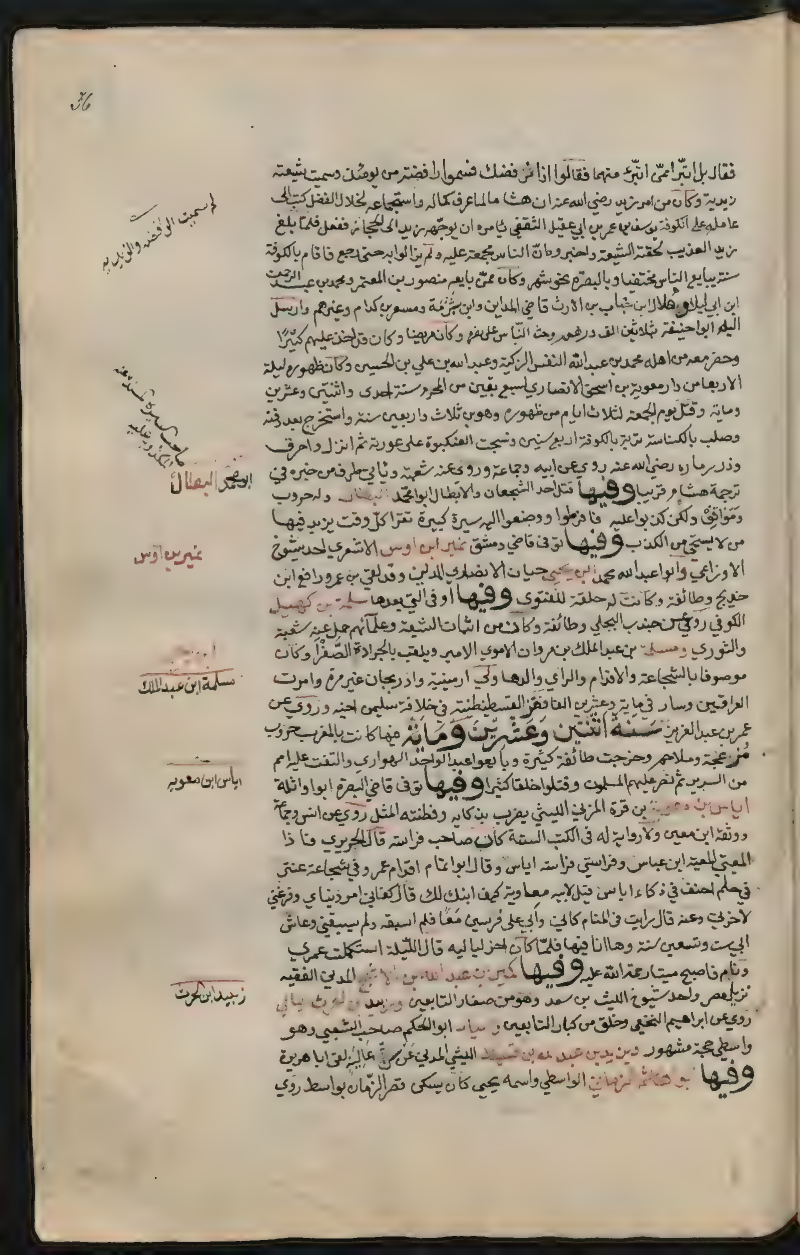 فقال بل اتبرأ ممن اتبرئ منهما فقالوا اذا نرفضك فسموا رافضة من يومئذ وسميت شيعته
زيدية وكان من امر زيد رضي الله عنه ان هشاما لما عرف كماله واستجماعه لخلال الفضل كتب الى
عامله على الكوفة يوسف بن عمر بن ابي عقيل الثقفي يامره ان يوجه زيد الى الحجاز ففعل فلما بلغ
زيد العذيب لحقته الشيعة واخبروه ان الناس مجمعة عليه ولم يزالوا به حتى رجع فاقام بالكوفة
سنة يبايع الناس مختفيا وبالبصرة نحو شهر وكان ممن بايعه منصور بن المعتمر ومحمد بن عبد الرحمن
ابن ابي ليلى وهلال ابن خباب بن الارت قاضي المداين وابن شبرمة ومسعر بن كدام وغيرهم وارسل
اليه ابو حنيفة ثلاثين الف درهم وحث الناس على نصره وكان مريضا وكان قد اخذ عليهم كثيرا
وحضر معه من اهله محمد بن عبد الله النفس الزكية وعبد الله بن علي بن الحسين وكان ظهوره ليلة
الاربعا من دار معوية بن اسحق الانصاري لسبع بقين من المحرم سنة احدى واثنتين وعشرين
وماية وقتل يوم الجمعة لثلاث ايام من ظهوره وهو بن ثلاث واربعين سنة واستخرج بعد دفنه
وصلب بالكناسة بالكوفة اربع سنين ونسجت العنكبوة على عورته ثم انزل واحرق
وذر رماده رضي الله عنه روى عن ابيه وجماعة وروى عنه شعبة وياتي طرف من خبره في
ترجمة هشام قريبا وفيها قتل احد الشجعان والابطال ابو محمد البطال وله حروب
ومواقف ولكن كذبوا عليه فافرطوا ووضعوا له سيرة كبيرة تقرا كل وقت يزيد فيها
من لا يستحي من الكذب وفيها توفي قاضي دمشق نمير ابن اوس الاشعري احد شيوخ
الاوزاعي وابو عبد الله محمد ابن يحيى حبان الانصاري المدني وقد لقي بن عمر ورافع ابن
خديج وطائفة وكانت له حلقة للفتوى وفيها او في التي بعدها سلمة بن كهيل
الكوفي روى عن جندب البجلي وطائفة وكان من اثبات الشيعة وعلمائهم حمل عنه شعبة
والثوري ومسلمة بن عبد الملك بن مروان الاموي الامير ويلقب بالجرادة الصفرا وكان
موصوفا بالشجاعة والاقدام والراي والدها ولي ارمينية واذربيجان غير مرة وامرت
العراقين وسار في ماية وعشرين الفا فغزا القسطنطنية في خلافة سليمن اخيه وروى عن
عمر بن عبد العزيز سنة اثنتين وعشرين ومائة فيها كانت بالمغرب حروب
مزعجة وملاحم وخرجت طائفة كثيرة وبايعوا عبد الواحد الهواري والتفت عليه امم
من البربر ثم نصر عليهم المسلمون وقتلوا خلقا كثيرا وفيها توفي قاضي البصرة ابو واثلة
اياس بن معوية بن قرة المزني الليثي يضرب بذكايه وفطنته المثل روى عن انس وجماعة
ووثقه ابن معين ولا رواية له في الكتب الستة كان صاحب فراسة قال الحريري فاذا
المعيتي المعية ابن عباس وفراستي فراسة اياس وقال ابو تمام اقدام عمرو في شجاعة عنتر
في حلم احنف في ذكاء اياس قيل لابيه معاوية كيف ابنك لك قال كفاني امر دنياي وفرغني
لاخرتي وعنه قال رايت في المنام كاني وابي على فرسين معا فلم اسبقه ولم يسبقني وعاش
ابي ست وتسعين سنة وها انا فيها فلما كان اخر لياليه قال الليلة استكملت عمر ابي
ونام فاصبح ميتا رحمة الله عليه وفيها بكير بن عبد الله بن الاشج المدني الفقيه
نزيل مصر واحد شيوخ الليث بن سعد وهو من صغار التابعين وزبيد بن الحرث اليامي
روى عن ابراهيم النخعي وخلق من كبار التابعين وسيار ابو الحكم صاحب الشعبي وهو
واسطي حجة مشهور ويزيد بن عبد الله بن قسيط الليثي المدني عن سن عالية لقي ابا هريرة
وفيها ابو هاشم الرماني الواسطي واسمه يحيى كان يسكن قصر الرمان بواسط روى
لم سميت الرافضة والزيدية
ابو محمد البطال
نمير بن اوس
مسلمة ابن عبد الملك
اياس ابن معويه
زبيد ابن الحرث